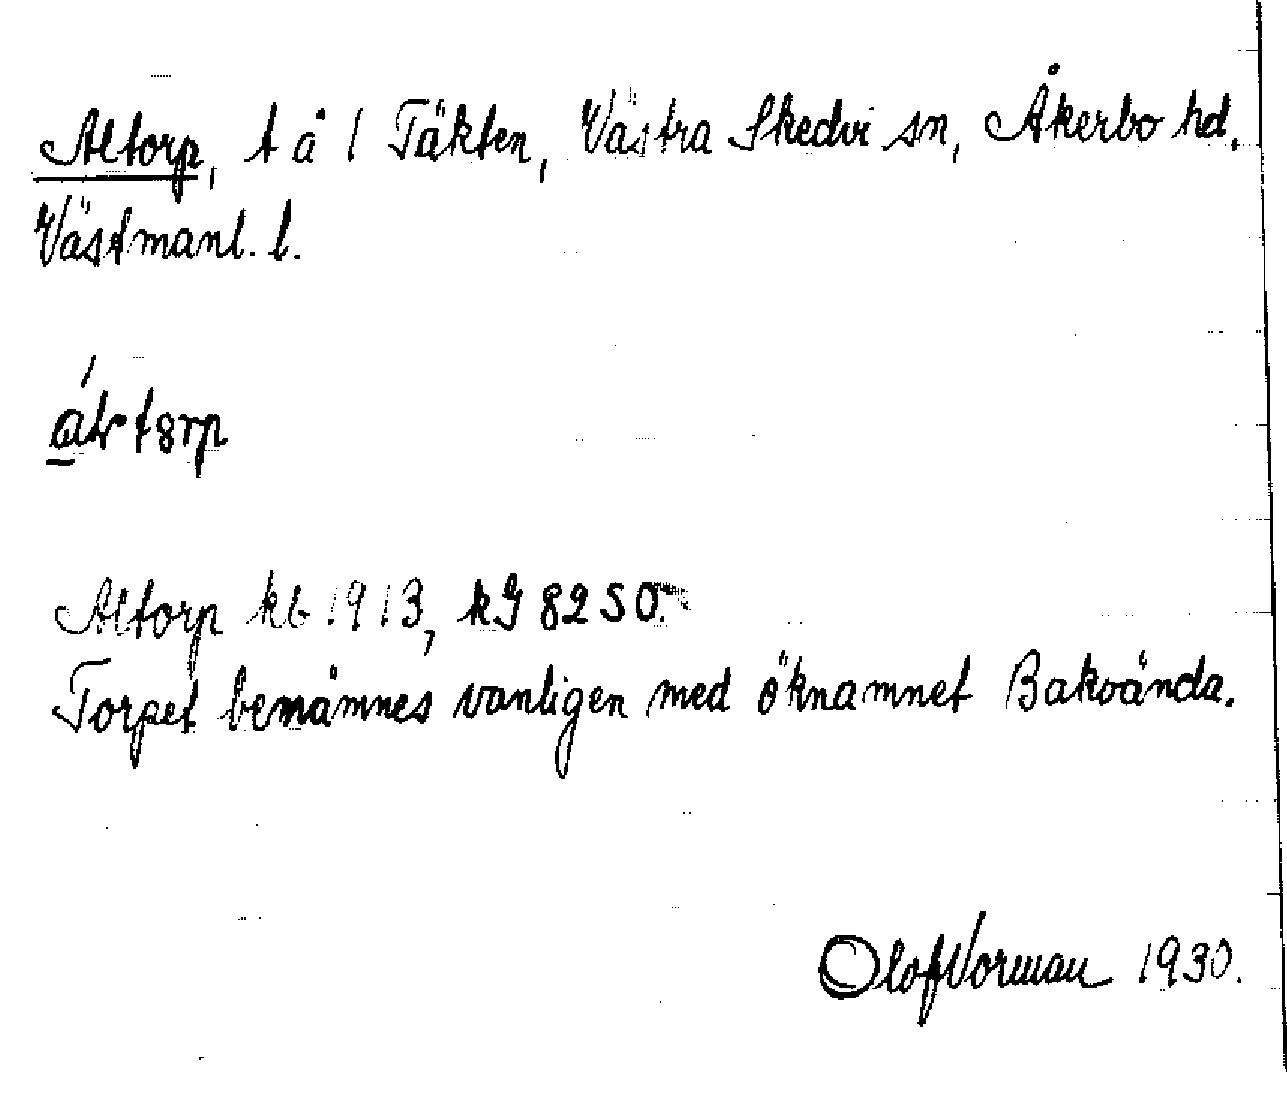 Altorp, t å 1 Täkten, Västra Skedvi sn, Åkerbo hd.
Västmanl. l.
Altorp kb 1913, kG 8250.
Torpet benämnes vanligen med öknamnet Bakvända.
Olof Norman 1930.